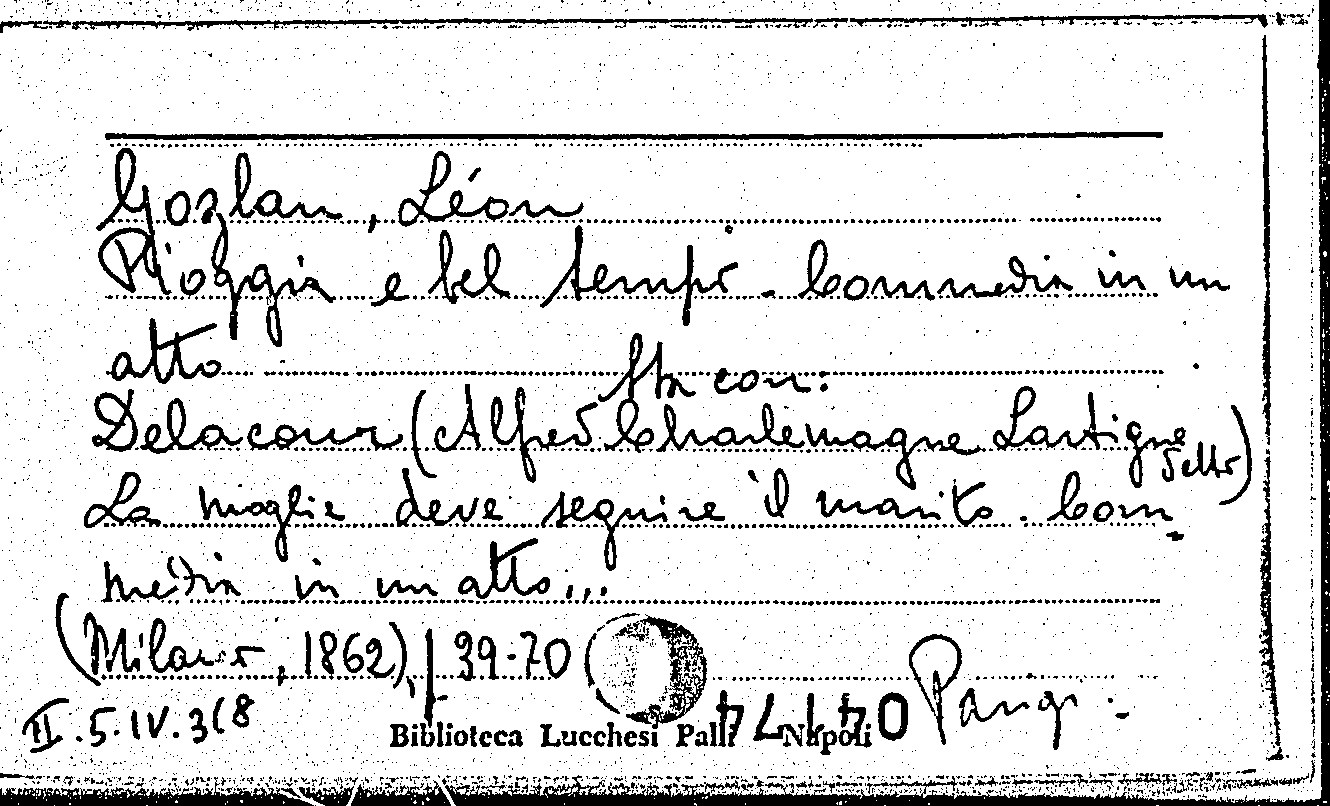 Gozlan, Léon
Pioggia e bel tempo. Commedia in un
atto
Sta con:
Delacour (Alfred Charlemagne Lartigue
detto)
La moglie deve seguire il marito. Com-
media in un atto...
(Milano, 1862), p. 39-70
II.5.IV.3(8
Biblioteca Lucchesi Palli Napoli